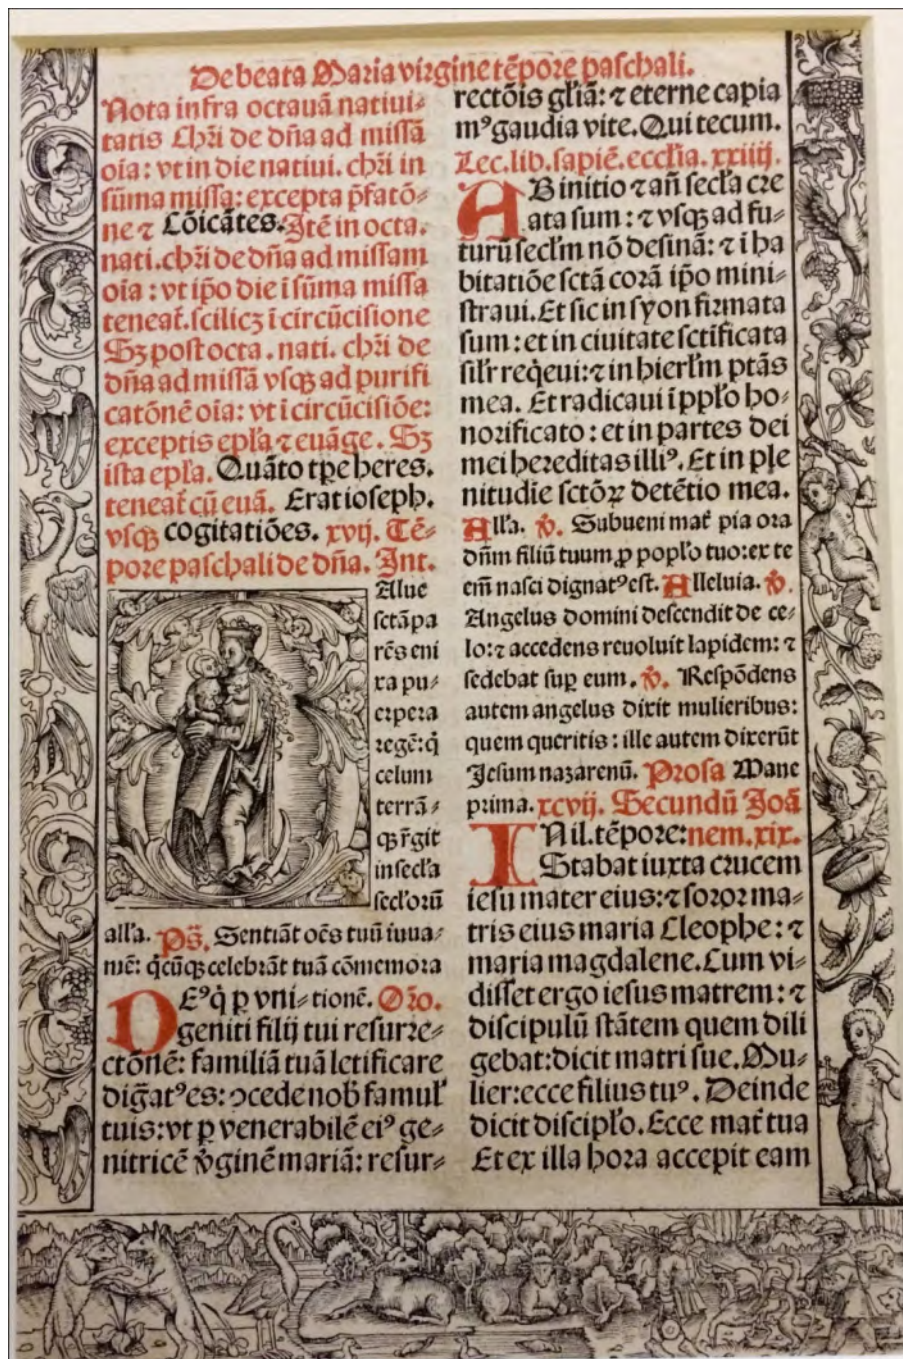 De beata Maria virgine tēpore paschali.
Nota infra octauā natiui⸗
tatis Chr̄i de dn̄a ad missā
oīa: vt in die natiui. chr̄i in
sūma missa: excepta p̄fatō⸗
ne ⁊ Cōīcātes. Itē in octa.
nati. chr̄i de dn̄a ad missam
oīa : vt ip̄o die ī sūma missa
teneat̄. scilicꝫ ī circūcisione
Sꝫ post octa. nati. chr̄i de
dn̄a ad missā vsqꝫ ad purifi
catōnē oīa: vt ī circūcisiōe:
exceptis ep̄ła ⁊ euāge. Sꝫ
ista ep̄ła. Quāto tp̄e heres.
teneat̄ cū euā. Erat ioseph.
vsqꝫ cogitatiōes. xvij. Tē⸗
pore paschali de dn̄a. Int.
Alue
sctā pa
rēs eni
xa pu⸗
erpera
regē: q̇
celum
terrā⸗
qꝫ r̄git
in secła
secłorū
ałła. Ps̄. Sentiāt oēs tuū iuua⸗
mē: q̇cūqꝫ celebrāt tuā cōmemora
DEꝰ q̇ ꝑ vni⸗ tionē. Or̄o.
geniti filij tui resurre⸗
ctōnē: familiā tuā letificare
digat̄ꝰ es: ꝯcede nob̄ famuł
tuis: vt ꝑ venerabilē eiꝰ ge⸗
nitricē v̇ginē mariā: resur⸗
rectōis gl̄iā: ⁊ eterne capia
mꝰ gaudia vite. Qui tecum.
Lec. lib. sapiē. eccł̄ia. xxiiij.
AB initio ⁊ an̄ secła cre
ata sum : ⁊ vsqꝫ ad fu⸗
turū secłm nō desinā: ⁊ ī ha
bitatiōe sctā corā ip̄o mini⸗
straui. Et sic in syon firmata
sum : et in ciuitate sctificata
siłr req̇eui: ⁊ in hierłm ptās
mea. Et radicaui ī ppło ho⸗
norificato : et in partes dei
mei hereditas illiꝰ. Et in ple
nitudīe sctōꝝ detētio mea.
Ałła. v̇. Subueni mat̄ pia ora
dn̄m filiū tuum ꝓ popło tuo: ex te
em̄ nasci dignat̄ꝰ est. Alleluia. v̇.
Angelus domini descendit de ce⸗
lo: ⁊ accedens reuoluit lapidem: ⁊
sedebat suꝑ eum. v̇. Respōdens
autem angelus dixit mulieribus:
quem queritis : ille autem dixerūt
Jesum nazarenū. Prosa Mane
prima. xcvij. Secundū Joā
IN il. tēpore: nem. xix.
Stabat iuxta crucem
iesu mater eius: ⁊ soror ma⸗
tris eius maria Cleophe: ⁊
maria magdalene. Cum vi⸗
disset ergo iesus matrem: ⁊
discipulū stātem quem dili
gebat: dicit matri sue. Mu⸗
lier: ecce filius tuꝰ. Deinde
dicit discipło. Ecce mat̄ tua
Et ex illa hora accepit eam